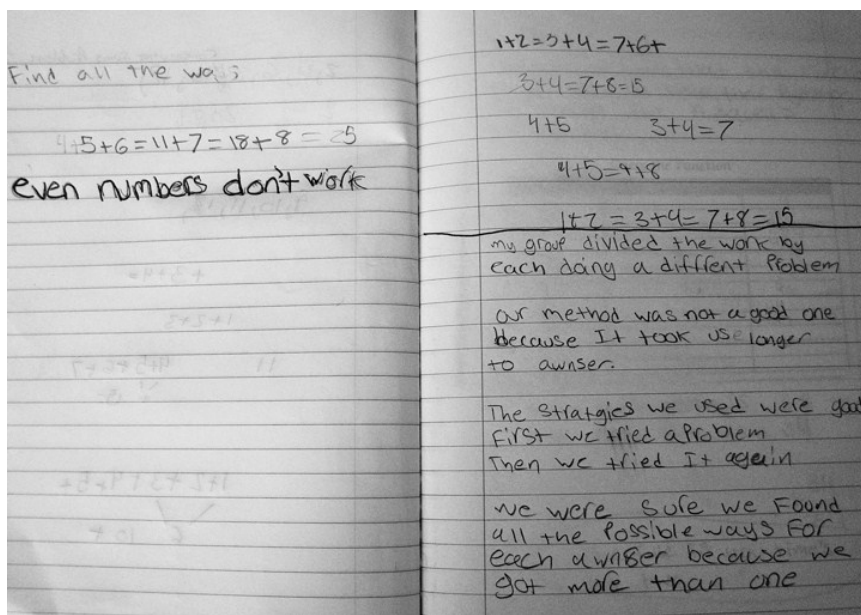 Find all the way;
4+5+6=11+7=18+8=25
even numbers don't work
1+2=3+4=7+6+
3+4=7+8=15
4+5 3+4=7
4+5=9+8
1+2=3+4=7+8=15
my group divided the work by
each doing a diffrent Problem
our method was not a good one
because It took use longer
to awnser.
The stratgies we used were good
First we tried a Problem
Then we tried It again
we were sure we Found
all the Possible ways For
each awnser because we
got more than one